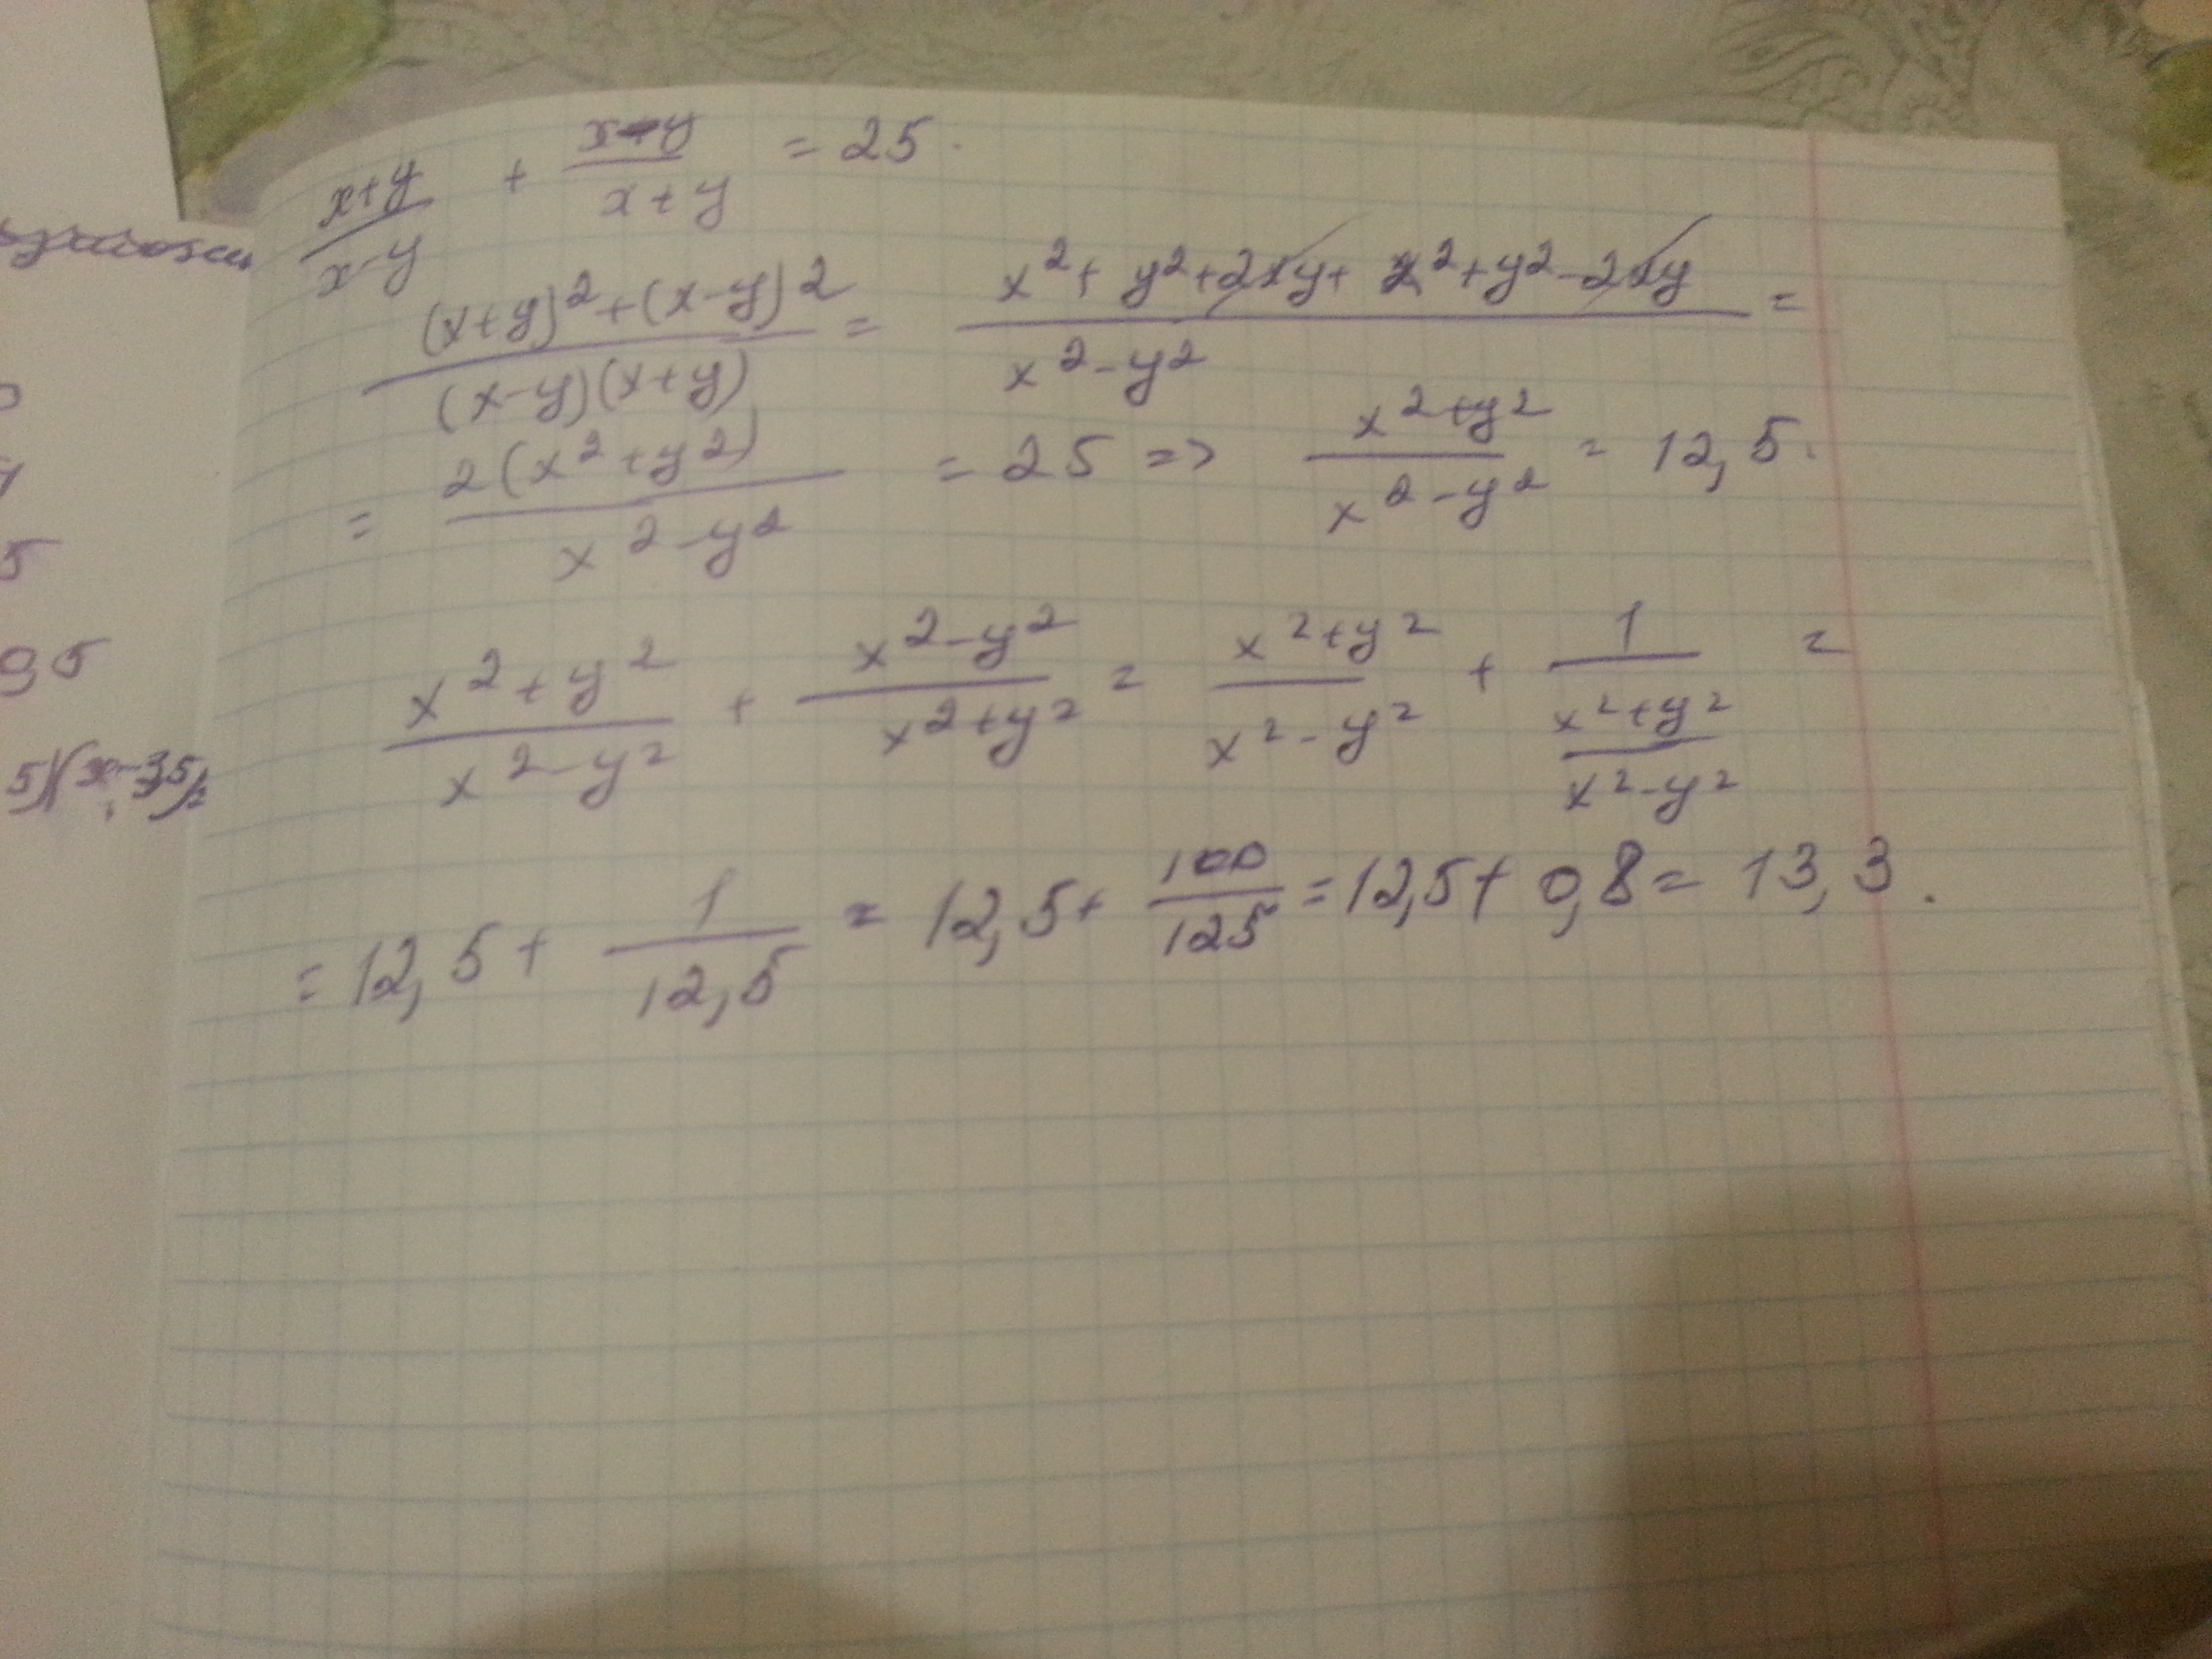 (x+y)/(x-y) + (x-y)/(x+y) = 25.
((x+y)²+(x-y)²)/((x-y)(x+y)) = (x²+y²+2xy+x²+y²-2xy)/(x²-y²) =
= 2(x²+y²)/(x²-y²) = 25 => (x²+y²)/(x²-y²) = 12,5.
(x²+y²)/(x²-y²) + (x²-y²)/(x²+y²) = (x²+y²)/(x²-y²) + 1/((x²+y²)/(x²-y²)) =
= 12,5 + 1/12,5 = 12,5 + 100/125 = 12,5 + 0,8 = 13,3.
5
95